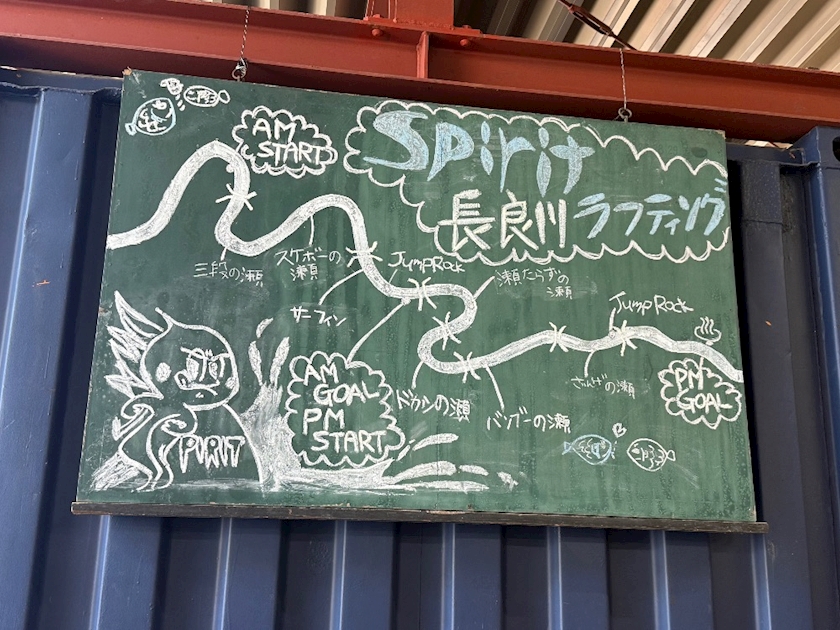 AM
START
Spirit
長良川 ラフティング
三段の瀬
スケボーの
瀬
サーフィン
Jump Rock
瀬たらずの
瀬
Jump Rock
AM
GOAL
PM
START
ドカンの瀬
バンガーの瀬
さんげの瀬
PM
GOAL
SPIRIT